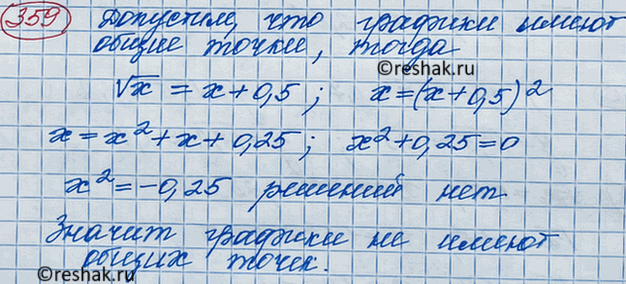 359 Допустим, что графики имеют
общие точки, тогда
©reshak.ru
√x = x+0,5; x=(x+0,5)²
x=x²+x+0,25; x²+0,25=0
x²=-0,25 решений нет
Значит графики не имеют
общих точек.
©reshak.ru